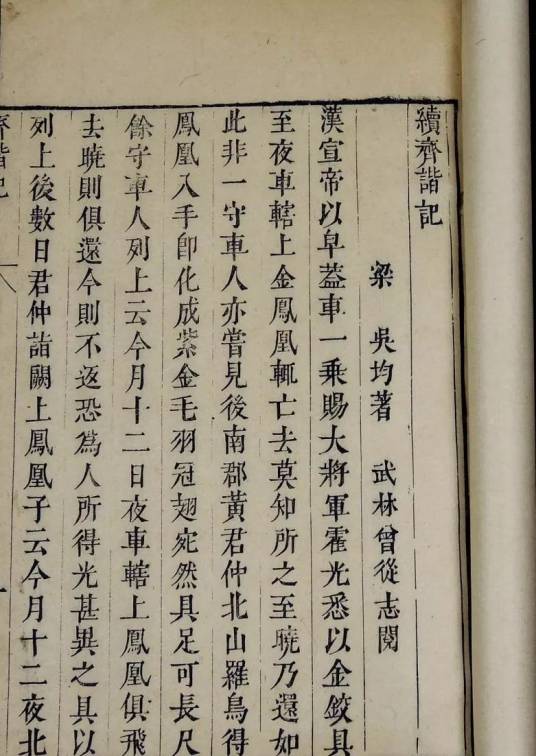 續齊諧記
梁　吳均著　武林曾從志閱
漢宣帝以皁葢車一乗賜大將軍霍光悉以金鉸具
至夜車轄上金鳳凰輒亡去莫知所之至曉乃還如
此非一守車人亦嘗見後南郡黃君仲北山羅鳥得
鳳凰入手即化成紫金毛羽冠翅宛然具足可長尺
餘守車人列上云今月十二日夜車轄上鳳凰俱飛
去曉則俱還今則不返恐爲人所得光甚異之具以
列上後數日君仲詣闕上鳳凰子云今月十二夜北
齊諧記